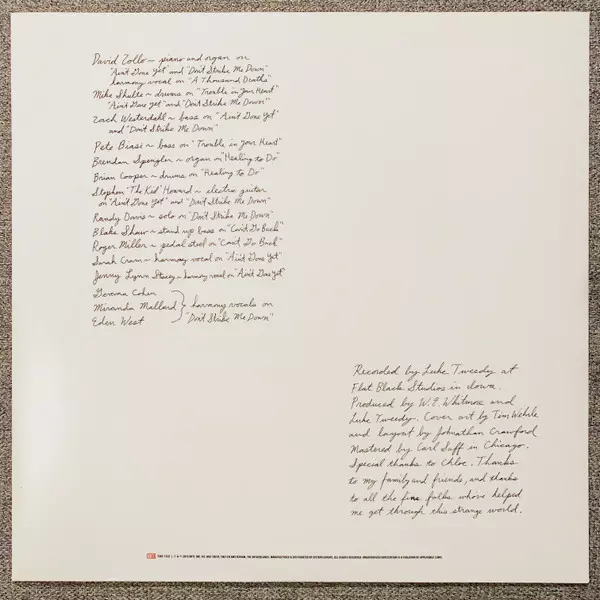 David Zollo ~ piano and organ on
"Ain't Gone Yet" and "Don't Strike Me Down"
harmony vocal on "A Thousand Deaths"
Mike Shulte ~ drums on "Trouble in Your Heart"
"Ain't Gone Yet" and "Don't Strike Me Down"
Zach Westerdahl ~ bass on "Ain't Gone Yet"
and "Don't Strike Me Down"
Pete Biasi ~ bass on "Trouble in Your Heart"
Brendan Spengler ~ organ on "Healing to Do"
Brian Cooper ~ drums on "Healing to Do"
Stephen "The Kid" Howard ~ electric guitar
on "Ain't Gone Yet" and "Don't Strike Me Down"
Randy Davis ~ solo on "Don't Strike Me Down"
Blake Shaw ~ stand up bass on "Can't Go Back"
Roger Miller ~ pedal steel on "Can't Go Back"
Sarah Cram ~ harmony vocal on "Ain't Gone Yet"
Jenny Lynn Stacey ~ harmony vocal on "Ain't Gone Yet"
Cohen
Miranda Mallard } harmony vocals on
Eden West "Don't Strike Me Down"
Recorded by Luke Tweedy at
Flat Black Studios in Iowa.
Produced by W.E. Whitmore and
Luke Tweedy. Cover art by Tim Wehrle
and layout by Johnathan Crawford
Mastered by Carl Saff in Chicago.
Special thanks to Chloe. Thanks
to my family and friends, and thanks
to all the fine folks who've helped
me get through this strange world.